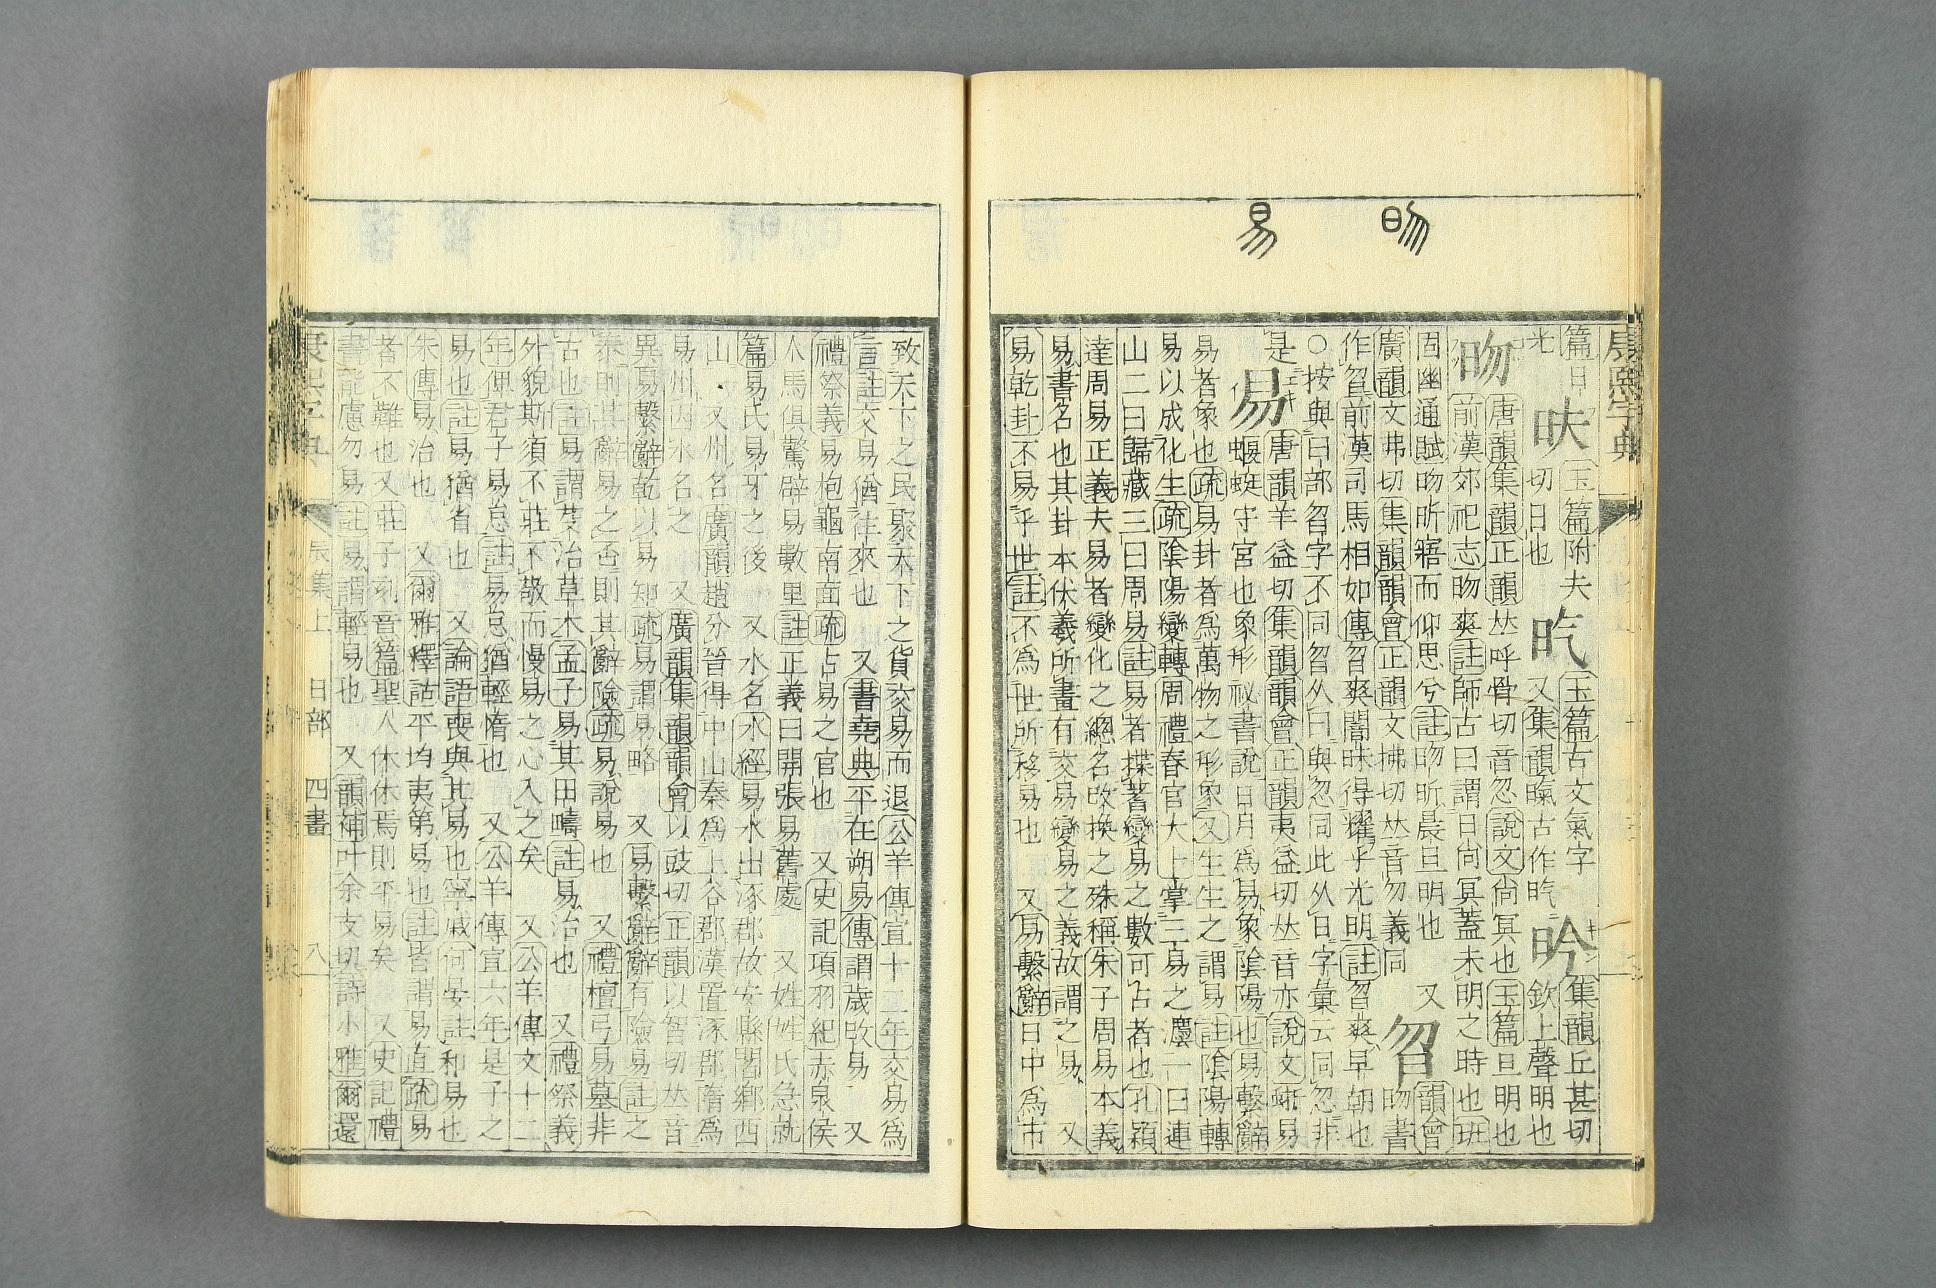 昒
易
康熙字典
篇日
光
昳
玉篇附夫
切日也
旿玉篇古文氣字
又集韻曔古作旿
昑集韻丘甚切
欽上聲明也
昒
唐韻集韻正韻𠀤呼骨切音忽說文尙冥也玉篇旦明也
前漢郊祀志昒爽註師古曰謂日尙冥蓋未明之時也班
固幽通賦昒昕寤而仰思兮註昒昕晨旦明也
又
韻會
廣韻文弗切集韻韻會正韻文拂切𠀤音勿義同
曶
昒書
作曶前漢司馬相如傳曶爽闇昧得耀乎光明註曶爽早朝也
○按與曰部曶字不同曶从曰與忽同此从日字彙云同忽非
是
易
唐韻羊益切集韻韻會正韻夷益切𠀤音亦說文蜥易
蝘蜓守宮也象形祕書說日月爲易象陰陽也易繫辭
易者象也疏易卦者爲萬物之形象又生生之謂易註陰陽轉
易以成化生疏陰陽變轉周禮春官大卜掌三易之灋一曰連
山二曰歸藏三曰周易註易者揲蓍變易之數可占者也孔穎
達周易正義夫易者變化之總名改換之殊稱朱子周易本義
易書名也其卦本伏羲所畫有交易變易之義故謂之易 又
易乾卦不易乎世註不爲世所移易也 又易繫辭日中爲市
致天下之民聚天下之貨交易而退公羊傳宣十二年交易爲
言註交易猶往來也 又書堯典平在朔易傳謂歲改易 又
禮祭義易抱龜南面疏占易之官也 又史記項羽紀赤泉侯
人馬俱驚辟易數里註正義曰開張易舊處 又姓姓氏急就
篇易氏易牙之後 又水名水經易水出涿郡故安縣閻鄉西
山 又州名廣韻趙分晉得中山秦爲上谷郡漢置涿郡隋爲
易州因水名之 又廣韻集韻韻會以豉切正韻以智切𠀤音
異易繫辭乾以易知疏易謂易略 又易繫辭辭有險易註之
泰則其辭易之否則其辭險疏易說易也 又禮檀弓易墓非
古也註易謂芟治草木孟子易其田疇註易治也 又禮祭義
外貌斯須不莊不敬而慢易之心入之矣 又公羊傳文十二
年俾君子易怠註易怠猶輕惰也 又公羊傳宣六年是子之
易也註易猶省也 又論語喪與其易也寧戚何晏註和易也
朱傳易治也 又爾雅釋詁平均夷弟易也註皆謂易直疏易
者不難也又莊子刻意篇聖人休休焉則平易矣 又史記禮
書能慮勿易註易謂輕易也 又韻補叶余支切詩小雅爾還
康熙字典
辰集上
日部
四畫
八